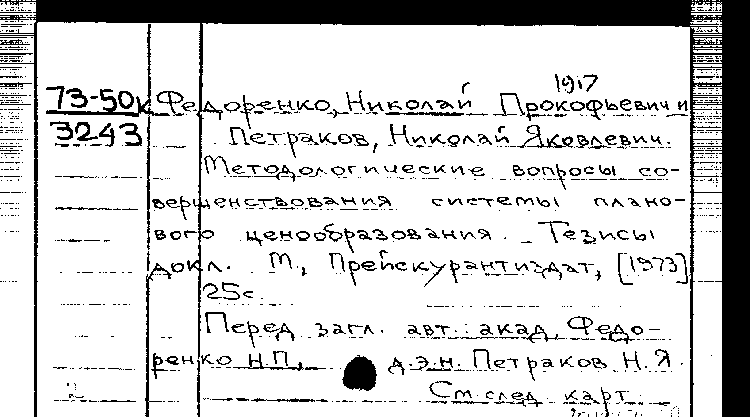 1917
73-50к Федоренко, Николай Прокофьевич и
3243 Петраков, Николай Яковлевич.
Методологические вопросы со-
вершенствования системы плано-
вого ценообразования. Тезисы
докл. М., Прейскурантиздат, [1973]
25с.
Перед загл. авт.: акад. Федо-
ренко Н.П., д.э.н. Петраков Н.Я.
См след. карт.
2